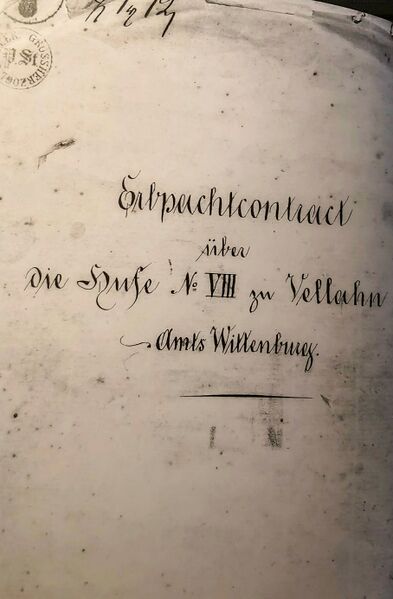 GROSSHERZOGL
Erbpachtcontract
über
die Hufe No VIII zu Vellahn
Amts Wittenburg.